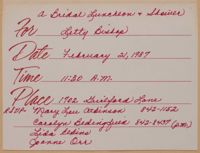 a Bridal Luncheon & Shower
For Letty Bishop
Date February 21, 1987
Time 11:30 A.M.
Place 1902 Guilford Lane
RSVP Mary Lou Atkinson 842-1162
Carolyn Bedingfield 842-8497 (p.m.)
Lida
Joanne Orr